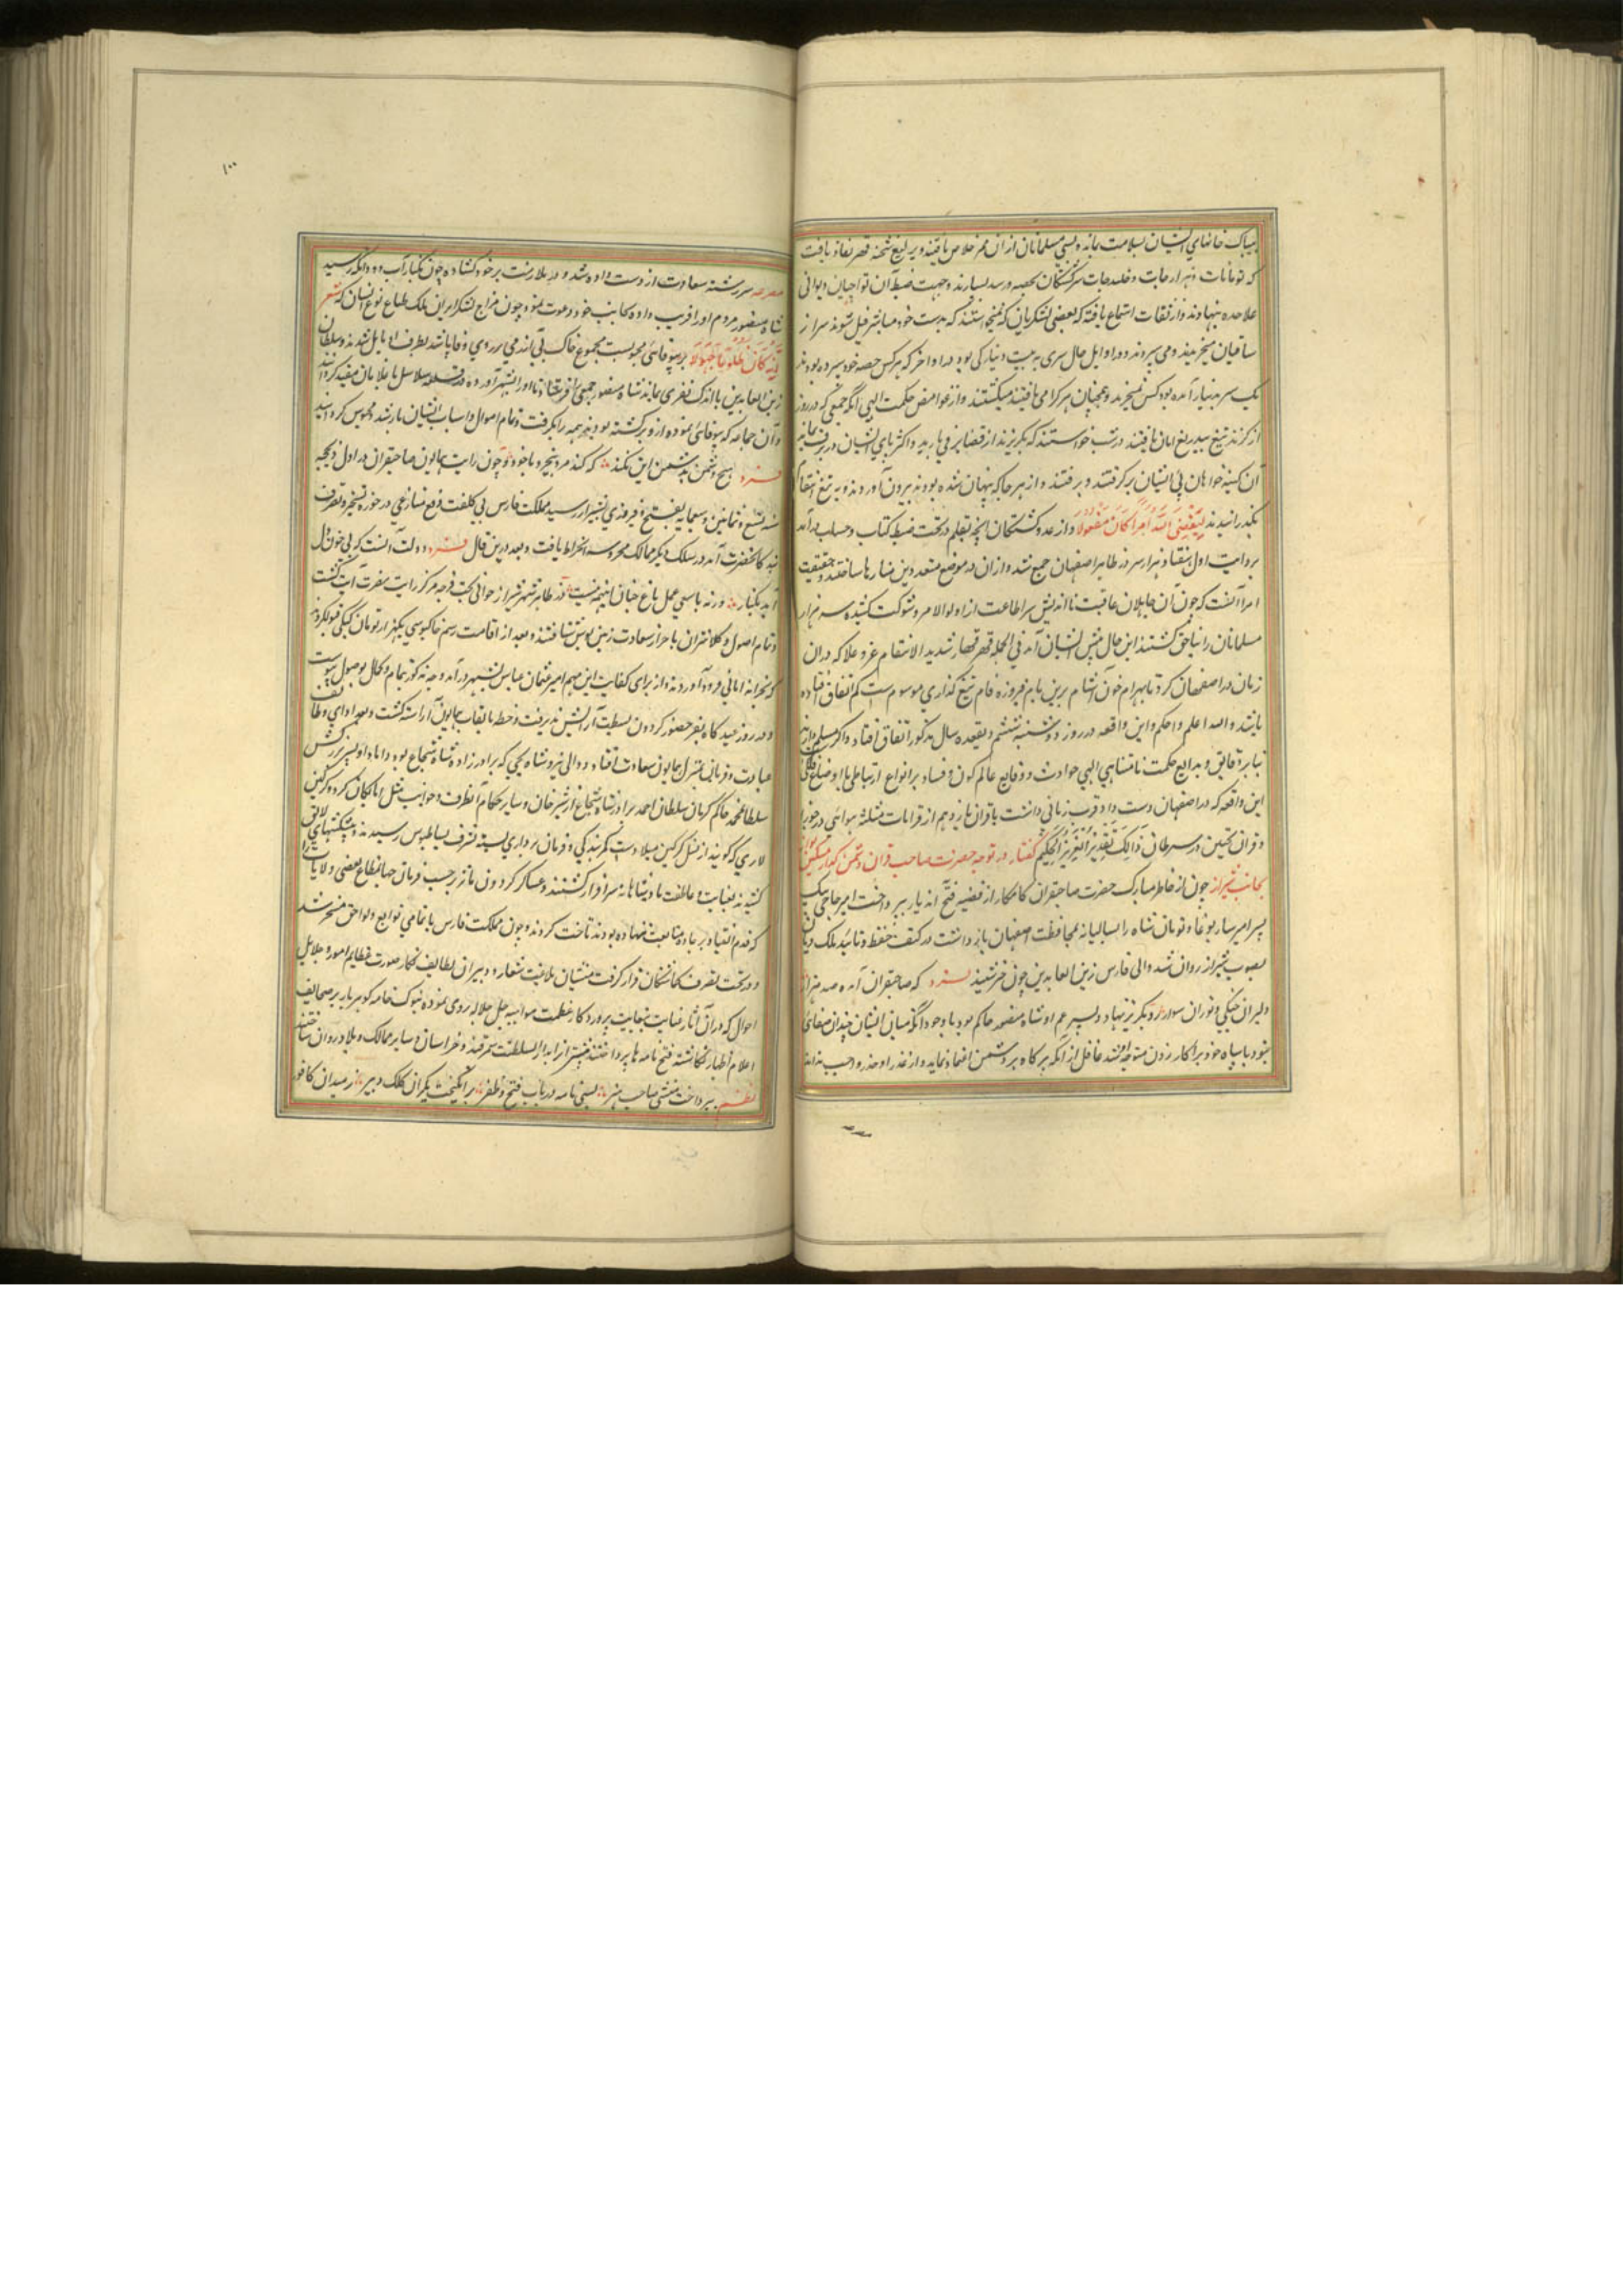 بیباک خانهای ایشان بسلامت بماند و بسی مسلمانان ازان ممر خلاص یافتند و یرلیغ شحنه قهر نفاذ یافت
که تومانات و هزارجات و صدجات سر کشتکان بحصه و رسد بسپارند و جهت ضبط آن تواجیان دیوانی
علاحده بنهادند و از ثقات استماع یافته که بعضی لشکریان که نمیخواستند که بدست خود مباشر قتل شوند سر از
یاساقیان میخریدند و می سپردند و در اوایل حال سری به بیست دینار کپکی بود و در اواخر که هرکس حصه خود سپرده بودند
یک سر به نیم دینار آمده بود و کس نمیخرید و همچنان هر کرا می یافتند میکشتند و از غوامض حکمت الهی انکه جمعی که در روز
از کزند تیغ بیدریغ امان یافتند در شب خواستند که بکریزند از قضا برفی بارید و اکثر پای ایشان در برف بماند
آن کینه خواهان پی ایشان بر گرفتند و برفتند و از هر جا که پنهان شده بودند بیرون آوردند و به تیغ انتقام
بکذرانیدند لیقضی الله امرا کان مفعولا و از عدد کشتکان انچه بقلم در تحت ضبط کتاب و حساب درآمد
بروایت اول هفتاد هزار سر در ظاهر اصفهان جمع شد و ازان در موضع متعدد مناره‌ها ساختند و حقیقت
امر آنست که چون آن جاهلان عاقبت نااندیش سر از اطاعت اولوالامر ذو شوکت کشیده سه هزار
مسلمانان را بناحق کشتند این حال پیش ایشان آمد فی الجمله قهر قهار شدید الانتقام عز و علا که دران
زمان در اصفهان کرد تا بهرام خون آشام برین بام فیروزه فام بتیغ کذاری موسوم است کم اتفاق افتاده
باشد و الله اعلم و احکم و این واقعه در روز دوشنبه ششم ذیقعده سال مذکور اتفاق افتاد
بنابر دقایق و بدایع حکمت نامتناهی الهی حوادث و وقایع عالم کون و فساد بر انواع ارتباطی با اوضاع فلکی
این واقعه که در اصفهان دست داد قرب زمانی داشت با قران یازدهم از قرانات مثلثه هوائی در جوزا
و قران نحسین در سرطان ذالک تقدیر العزیز الحکیم گفتار در توجه حضرت صاحب قران
بجانب شیراز چون از خاطر مبارک حضرت صاحبقران کامکار از قضیه فتح آن دیار بپرداخت امیر حاجی بیک
پسر امیر ساربوغا و نونان شاه را بسالیانه بمحافظت اصفهان بازداشت در کنف حفظ و تائید ملک دیان
بصوب شیراز روان شد والی فارس زین العابدین چون خبر شنید که صاحبقران آمد و صد هزار
دلیران جنکی و توران سوار رو بکریز نهاد و پسر عم او شاه منصور حاکم بود با وجود انکه میان ایشان چندان صفائی
نبود با سپاه خود برآکار زدن متوجه اوشد غافل از آنکه هر کاه بر دشمن اعتماد نماید و از غدر او حذر واجب نداند
۱۰۰
مصرعه سر رشته سعادت از دست داده شد و در ملامت بر خود کشاده چون بکنار آب دودانکه رسید
شاه منصور مردم او را فریب داده بجانب خود دعوت نمود چون مزاج لشکر ایران بلک طباع نوع انسان که شعر
انه کان ظلوما جهولا بر بیوفائی مجبولست مجموع خاک بی آزرمی بر روی وفا پاشیدند بطرف او مایل شدند و سلطان
زین العابدین با اندک نفری بماند شاه منصور جمعی را فرستاد تا او را بشهر آورده در قلعه سلاسل با غلامان مقید کردانید
و آن جماعه که بیوفائی نموده از و برکشته بودند همه را بکرفت و تمام اموال و اسباب ایشان بازستد و محبوس کردانید
فرد هیچ دشمن بدشمن این نکند که کند مرد بیخرد با خود و چون رایت همایون صاحبقران در اول ذیحجه
سنه تسع و ثمانین و سبعمایه بفتح و فیروزی بشیراز رسید مملکت فارس بی کلفت نزع منازعی در حوزه تسخیر و تصرف
بندکانحضرت آمد در سلک دیکر ممالک محروسه انخراط یافت و بعد درین قال فرد دولت آنست که بی خون دل
آید بکنار ورنه با سعی عمل باغ جنان اینهمه نیست در ظاهر شهر شیراز حوالی تخت قرجه مرکز رایت نصرت آیت کشت
و تمام اصول و کلانتران باحراز سعادت زمین بوس شتافتند و بعد از اقامت رسم خاکبوسی یکهزار تومان کپکی قبول کردند
که بخزانه امانی فرود آوردند و از برای کفایت این مهم امیر عثمان عباس بشهر درآمد و وجه مذکور بتمام و کمال بوصول پیوست
و در روز عید کاه بفر حضور کردون بسطت آرایش پذیرفت و خطبه بالقاب همایون آراسته کشت و بعد ادای وظایف
عبادت و قربانی بمنزل همایون سعادت افتاد و والی یزد شاه یحیی که برادر زاده شاه شجاع بود و داماد او با پسر بزرکش
سلطان محمد حاکم کرمان سلطان احمد برادر شاه شجاع از شیرخان و سایر حکام آنطرف و جوانب مثل اتابکان کرد و کرکین
لاری که کویند از نسل کرکین میلاد ست کمر بندکی و فرمان برداری بسته بشرف بساط بوس رسیدند و پیشکشهای لایق
کشیدند بعنایت و عاطفت پادشاهانه سرافراز کشتند و عساکر کردون مآثر بر حسب فرمان جهانمطاع بعضی ولایات را
که قدم انقیاد بر جاده متابعت ننهاده بودند تاخت کردند و چون مملکت فارس با تمامی توابع و لواحق مسخر شد
و در تحت تصرف کماشتکان قرار کرفت منشیان بلاغت شعار و دبیران لطایف نکار صورت عظایم امور و جلایل
احوال که در آن آثار عنایت بنهایت پروردکار عظمت مواهبه جل جلاله روی نموده بنوک خامه کوهربار بر صحایف
اعلام و اظهار نکاشته فتح نامه ها پرداختند پیشتر از ان بدار السلطنت سمرقند و خراسان و سایر ممالک و بلاد روان ساختند
نظم بپرداخت منشی صاحب هنر بسی نامه در باب فتح و ظفر برانگیخت یکران کلک دبیر ز میدان کافور